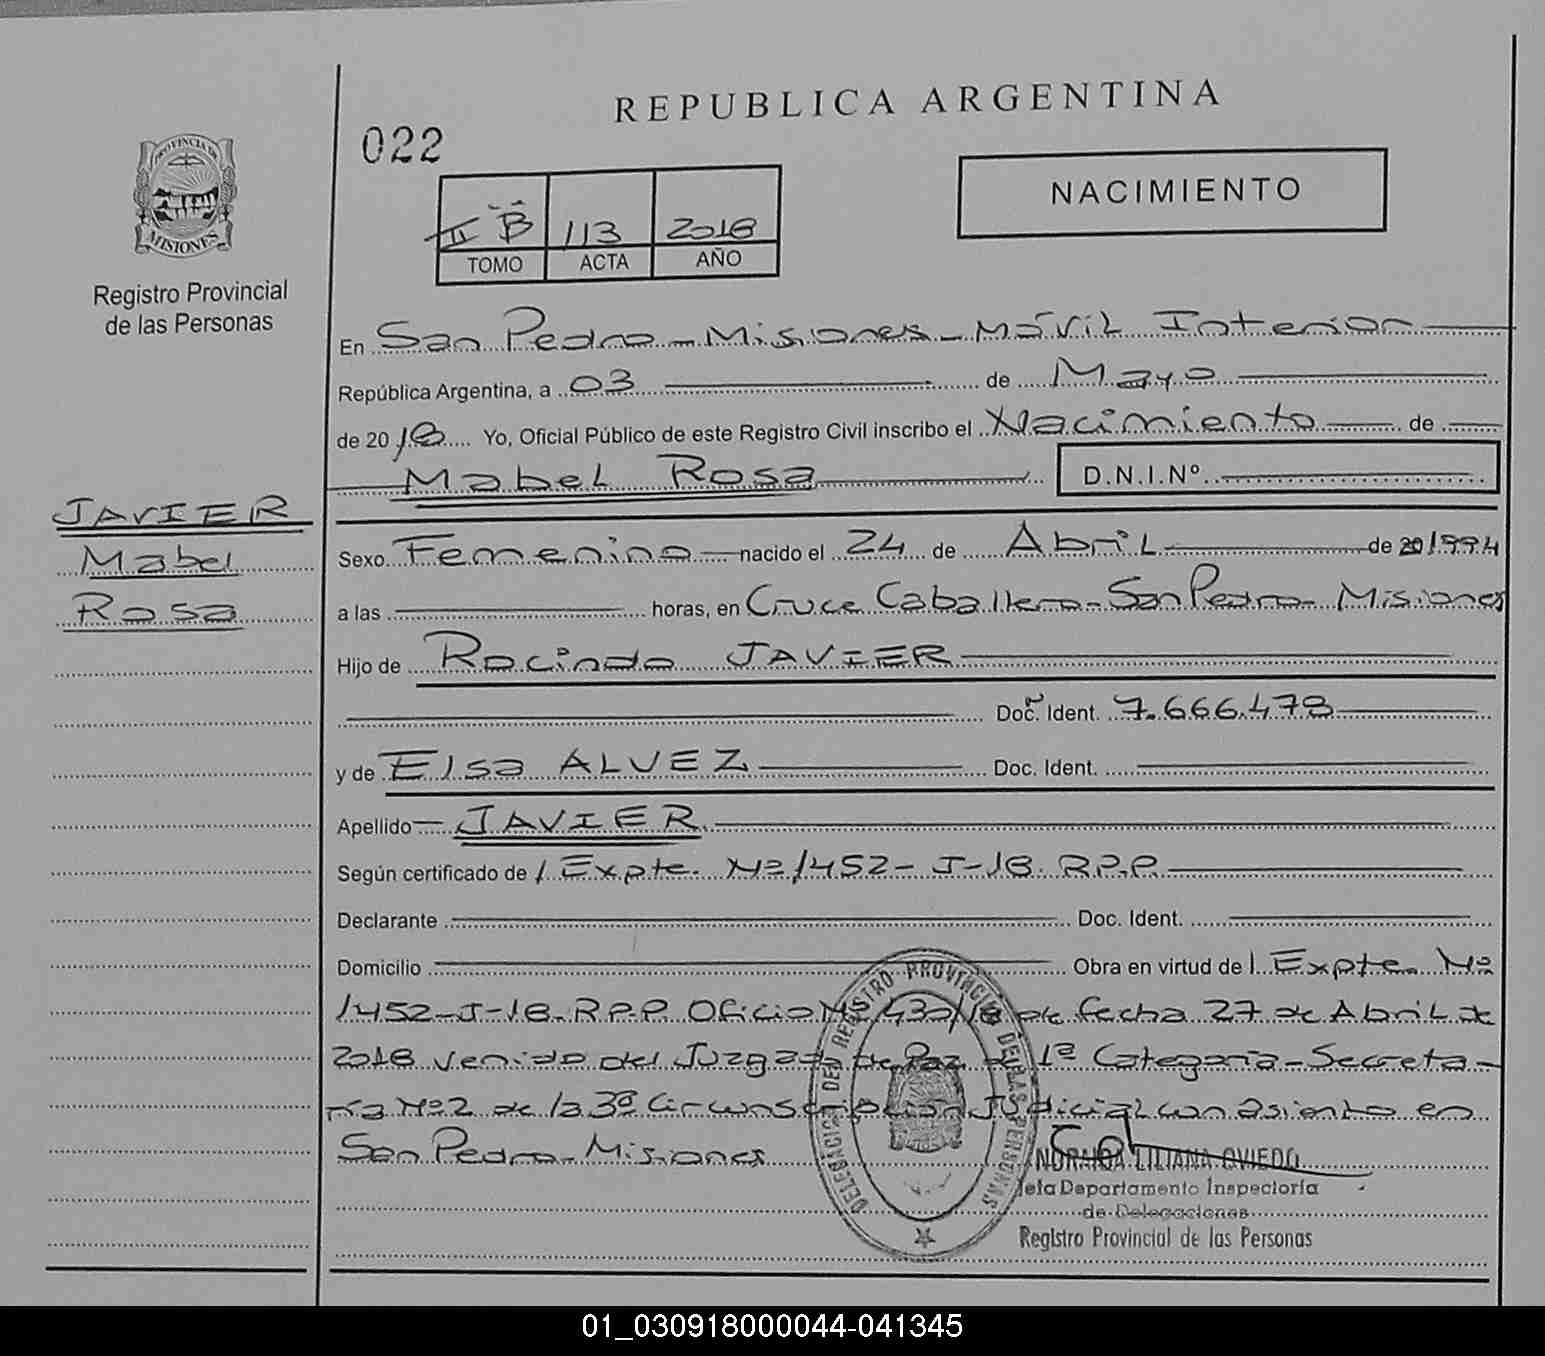 REPUBLICA ARGENTINA
022
NACIMIENTO
PROVINCIA DE
MISIONES
Registro Provincial
de las Personas
II "B" 113 2018
TOMO ACTA AÑO
En San Pedro - Misiones - Móvil Interior
República Argentina, a 03 de Mayo
de 2018 Yo, Oficial Público de este Registro Civil inscribo el Nacimiento de
Mabel Rosa D.N.I.Nº
JAVIER
Mabel
Rosa
Sexo Femenino nacido el 24 de Abril de 1994
a las horas, en Cruce Caballero - San Pedro - Misiones
Hijo de Rocindo JAVIER
Doc. Ident. 7.666.478
y de Elsa ALVEZ Doc. Ident.
Apellido JAVIER
Según certificado de / Expte. Nº 1452-J-18. R.P.P.
Declarante Doc. Ident.
Domicilio Obra en virtud de / Expte. Nº
1452-J-18-R.P.P. Oficio Nº 430/18 de fecha 27 de Abril de
2018 venido del Juzgado de Paz de 1ª Categoría - Secreta-
ría Nº2 de la 3ª Circunscripción Judicial con asiento en
San Pedro - Misiones
DELEGACION DEL REGISTRO PROVINCIAL DE LAS PERSONAS
LILIANA OVIEDO
Jefa Departamento Inspectoría
de Delegaciones
Registro Provincial de las Personas
01_030918000044-041345